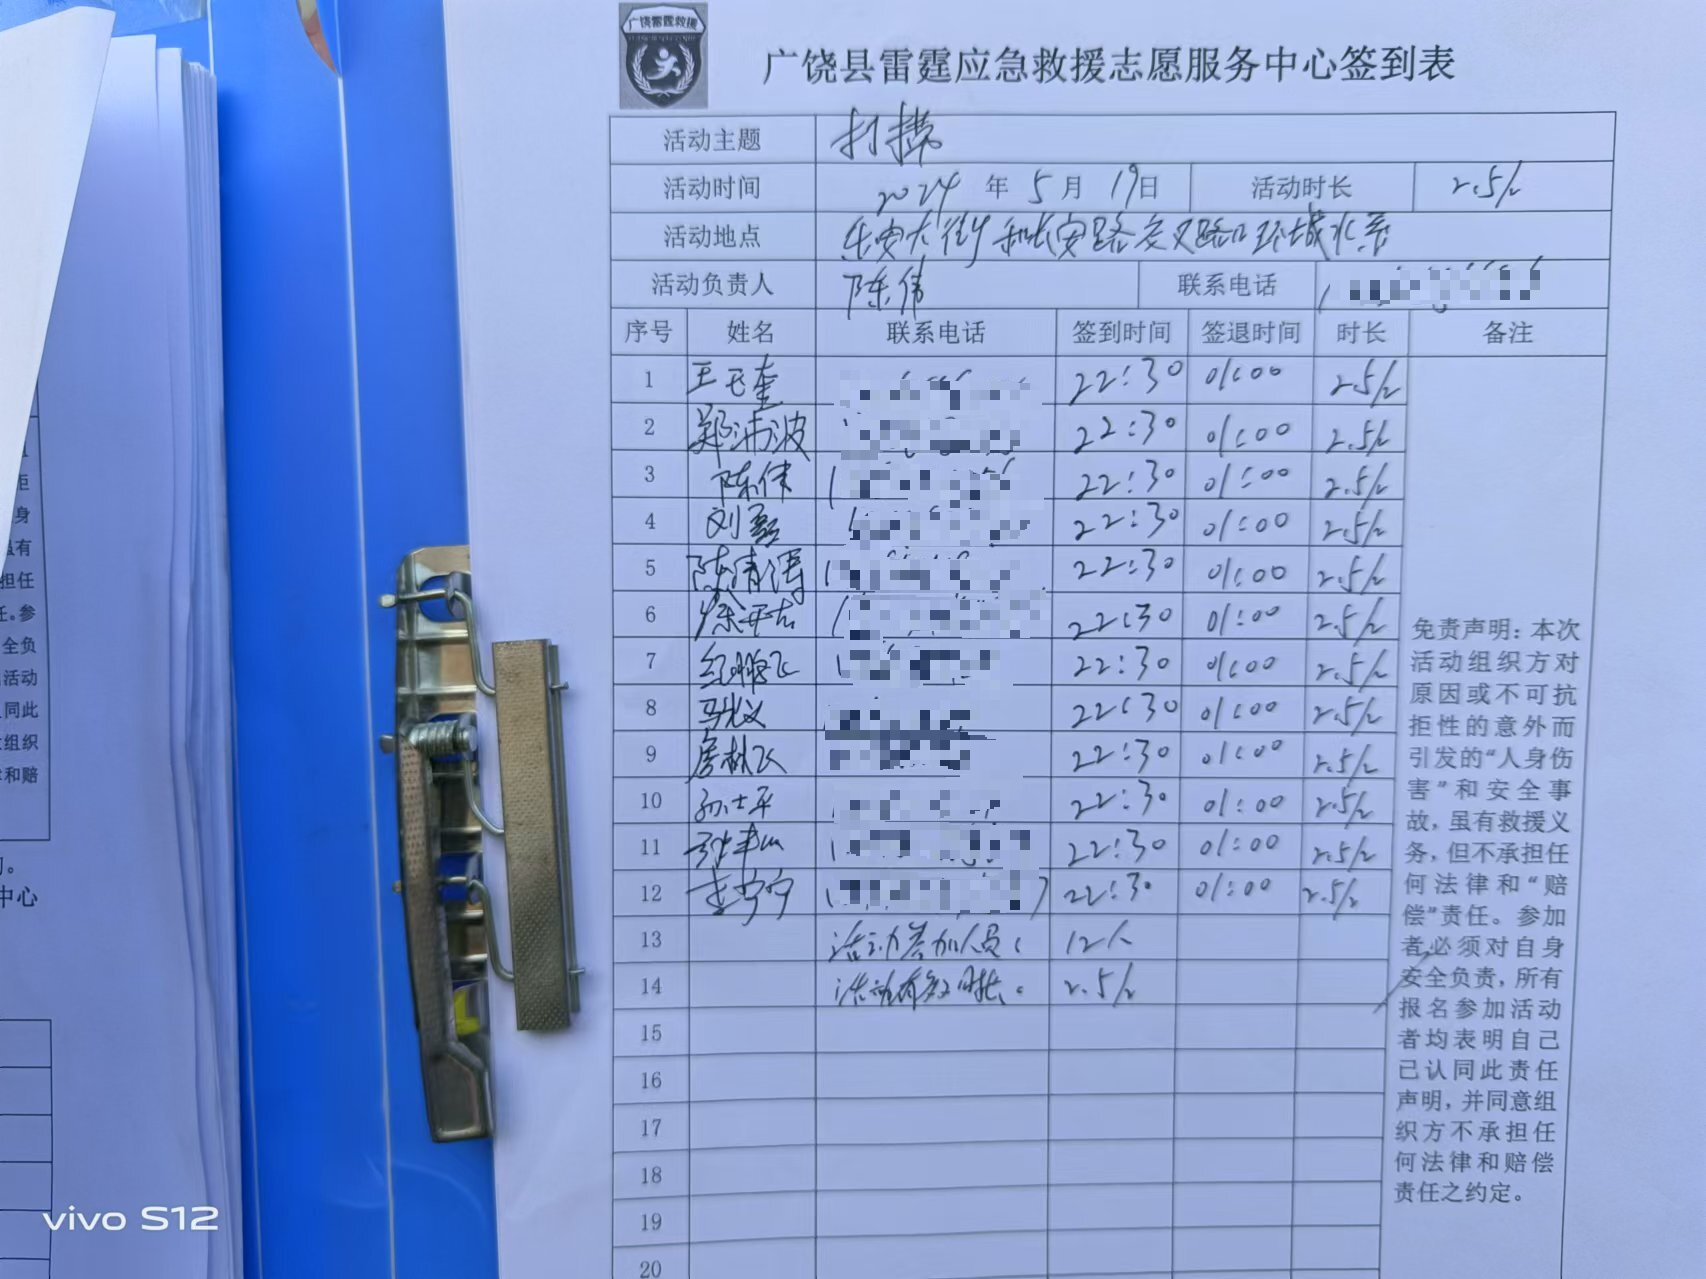 广饶雷霆救援
广饶县雷霆应急救援志愿服务中心签到表
活动主题 打捞
活动时间 2024 年 5 月 19日 活动时长 2.5h
活动地点 乐安大街和长安路交叉路口环城水系
活动负责人 陈伟 联系电话
序号 姓名 联系电话 签到时间 签退时间 时长 备注
1 22:30 01:00 2.5h
2 郑沛波 22:30 01:00 2.5h
3 陈伟 22:30 01:00 2.5h
4 刘磊 22:30 01:00 2.5h
5 陈清涛 22:30 01:00 2.5h
6 22:30 01:00 2.5h
7 纪鹏飞 22:30 01:00 2.5h
8 22:30 01:00 2.5h
9 22:30 01:00 2.5h
10 孙士平 22:30 01:00 2.5h
11 22:30 01:00 2.5h
12 22:30 01:00 2.5h
13 活动参加人员: 12人
14 活动有效时长: 2.5h
15
16
17
18
19
20
免责声明：本次
活动组织方对
原因或不可抗
拒性的意外而
引发的“人身伤
害”和安全事
故，虽有救援义
务，但不承担任
何法律和“赔
偿”责任。参加
者必须对自身
安全负责，所有
报名参加活动
者均表明自己
已认同此责任
声明，并同意组
织方不承担任
何法律和赔偿
责任之约定。
身
担任
任。参
全负
活动
同此
组织
和赔
中心
vivo S12